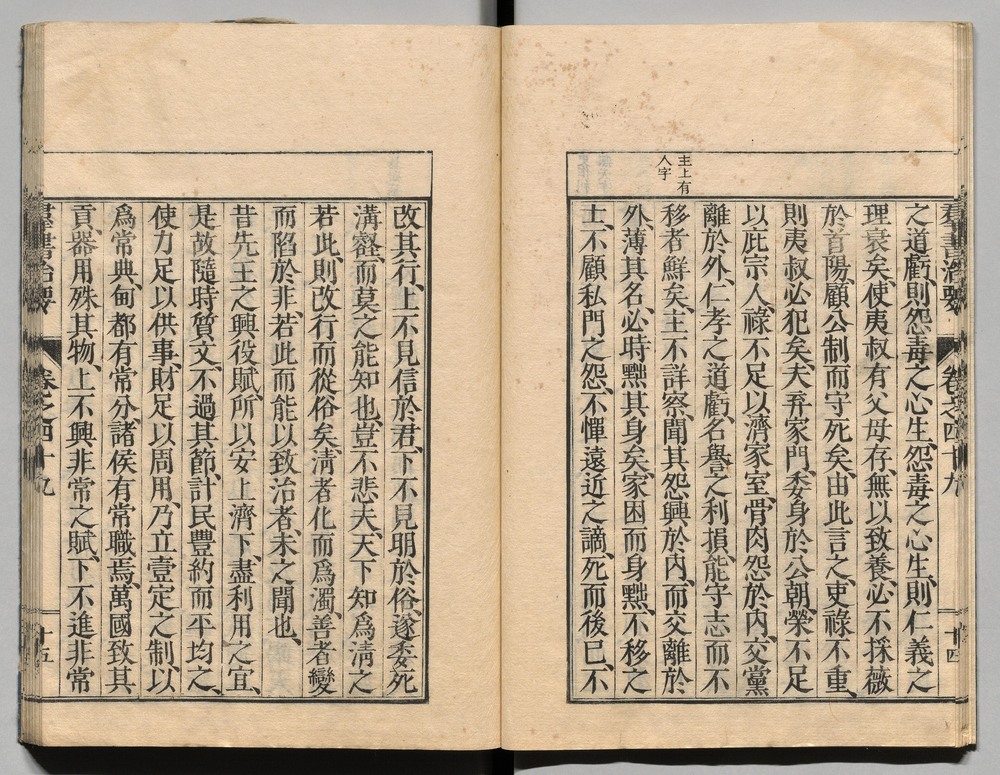 群書治要 卷之四十九 十四
之道虧、則怨毒之心生、怨毒之心生、則仁義之
理衰矣、使夷叔有父母存、無以致養、必不採薇
於首陽、顧公制而守死矣、由此言之、吏祿不重、
則夷叔必犯矣、夫弃家門、委身於公朝、榮不足
以庇宗人、祿不足以濟家室、骨肉怨於内、交黨
離於外、仁孝之道虧、名譽之利損、能守志而不
移者鮮矣、主不詳察、聞其怨興於内、而交離於
外、薄其名、必時黜其身矣、家困而身黜、不移之
士、不顧私門之怨、不憚遠近之謫、死而後已、不
主上有
人字
改其行、上不見信於君、下不見明於俗、遂委死
溝壑、而莫之能知也、豈不悲夫、天下知爲清之
若此、則改行而從俗矣、清者化而爲濁、善者變
而陷於非、若此而能以致治者、未之聞也、
昔先王之興役賦、所以安上濟下、盡利用之宜、
是故隨時質文、不過其節、計民豐約而平均之、
使力足以供事、財足以周用、乃立壹定之制、以
爲常典、甸都有常分、諸侯有常職焉、萬國致其
貢、器用殊其物、上不興非常之賦、下不進非常
群書治要 卷之四十九 十五